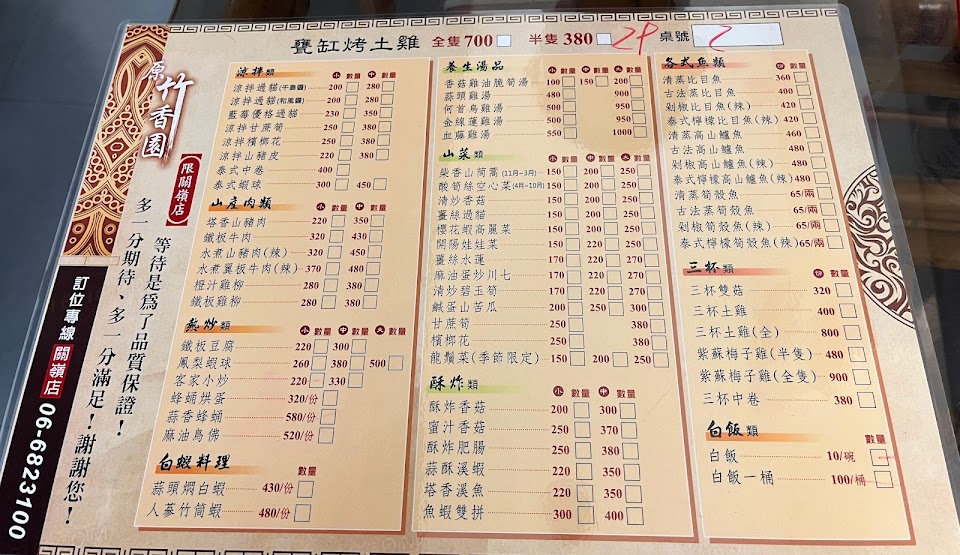 甕缸烤土雞 全隻700 半隻380 24 桌號 2
原竹香園
【限關嶺店】
等待是為了品質保證！
多一分期待、多一分滿足！謝謝您！
訂位專線 關嶺店 06-6823100
涼拌類 小 數量 中 數量
涼拌過貓(千島醬) 200 280
涼拌過貓(和風醬) 200 280
藍莓優格過貓 230 350
涼拌甘蔗筍 250 380
涼拌檳榔花 250 380
涼拌山豬皮 220 380
泰式中卷 400
泰式蝦球 300 450
山產肉類 小 數量 中 數量
塔香山豬肉 220 350
鐵板牛肉 320 430
水煮山豬肉(辣) 320 450
水煮翼板牛肉(辣) 370 480
橙汁雞柳 280 380
鐵板雞柳 280 380
熱炒類 小 數量 中 數量 大 數量
鐵板豆腐 220 300
鳳梨蝦球 260 380 500
客家小炒 220 330
蜂蛹烘蛋 320/份
蒜香蜂蛹 580/份
麻油鳥佛 520/份
白蝦料理 數量
蒜頭燜白蝦 430/份
人蔘竹筒蝦 480/份
養生湯品 小 數量 中 數量 大 數量
香菇雞油脆筍湯 100 150 200
蒜頭雞湯 480 900
何首烏雞湯 500 950
金線蓮雞湯 500 950
血藤雞湯 550 1000
山菜類 小 數量 中 數量 大 數量
柴香山茼蒿(11月~3月) 150 200 250
酸筍絲空心菜(4月~10月) 150 200 250
清炒香菇 150 200 250
薑絲過貓 150 200 250
櫻花蝦高麗菜 150 200 250
開陽娃娃菜 150 200 250
薑絲水蓮 170 220 270
麻油蛋炒川七 170 220 270
清炒碧玉筍 170 220 270
鹹蛋山苦瓜 200 250 300
甘蔗筍 250 380
檳榔花 250 380
龍鬚菜(季節限定) 150 200 250
酥炸類 小 數量 中 數量
酥炸香菇 200 300
蜜汁香菇 250 370
酥炸肥腸 250 380
蒜酥溪蝦 220 350
塔香溪魚 220 350
魚蝦雙拼 300 400
各式魚類 份 數量
清蒸比目魚 360
古法蒸比目魚 400
剁椒比目魚(辣) 420
泰式檸檬比目魚(辣) 420
清蒸高山鱸魚 460
古法高山鱸魚 480
剁椒高山鱸魚(辣) 480
泰式檸檬高山鱸魚(辣) 480
清蒸筍殼魚 65/兩
古法蒸筍殼魚 65/兩
剁椒筍殼魚(辣) 65/兩
泰式檸檬筍殼魚(辣) 65/兩
三杯類 份 數量
三杯雙菇 320
三杯土雞 400
三杯土雞(全) 800
紫蘇梅子雞(半隻) 480
紫蘇梅子雞(全隻) 900
三杯中卷 380
白飯類 數量
白飯 10/碗
白飯一桶 100/桶